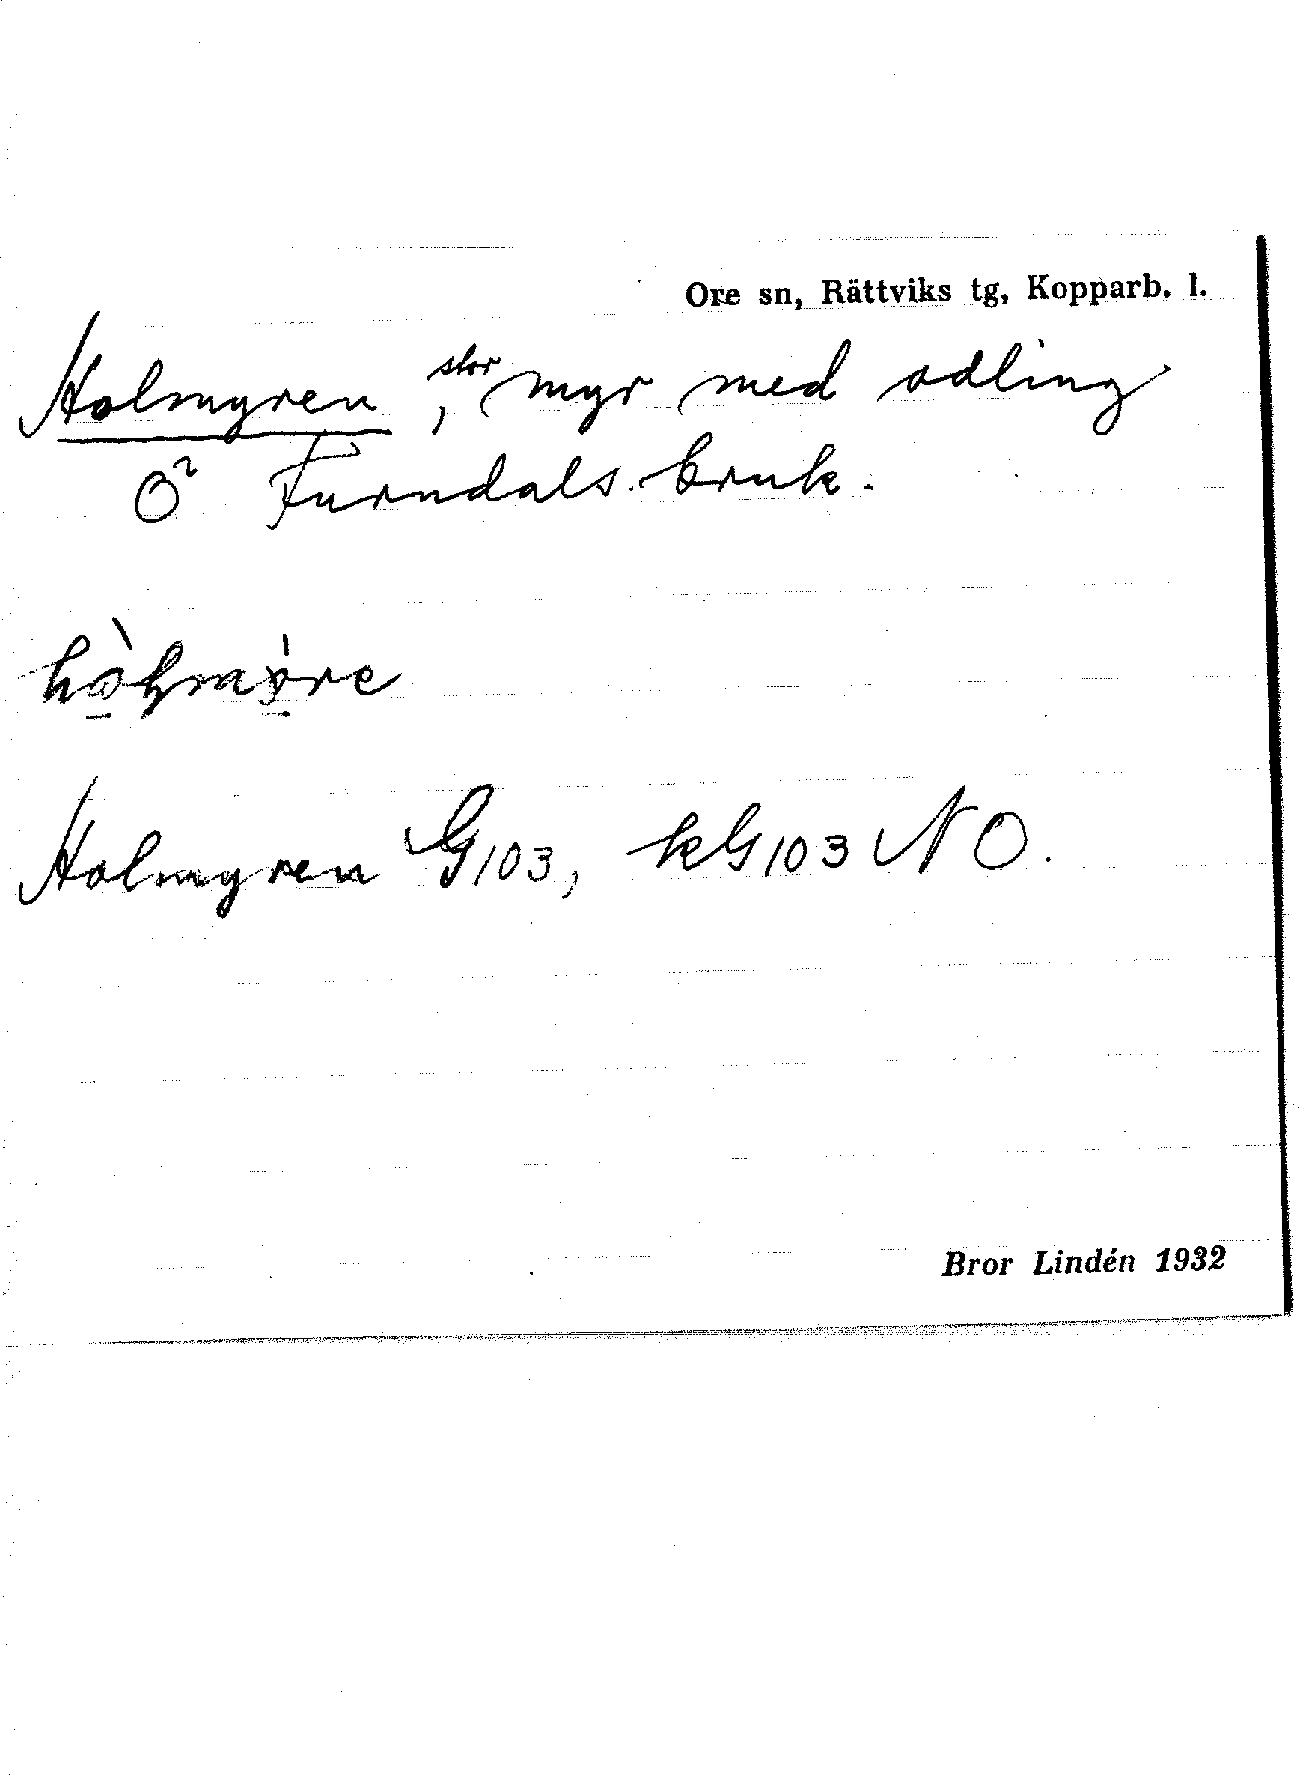 Ore sn, Rättviks tg, Kopparb. l.
Holmyren, stor myr med odling
O² Furudals bruk.
Holmyren G103, kG103 NO.
Bror Lindén 1932